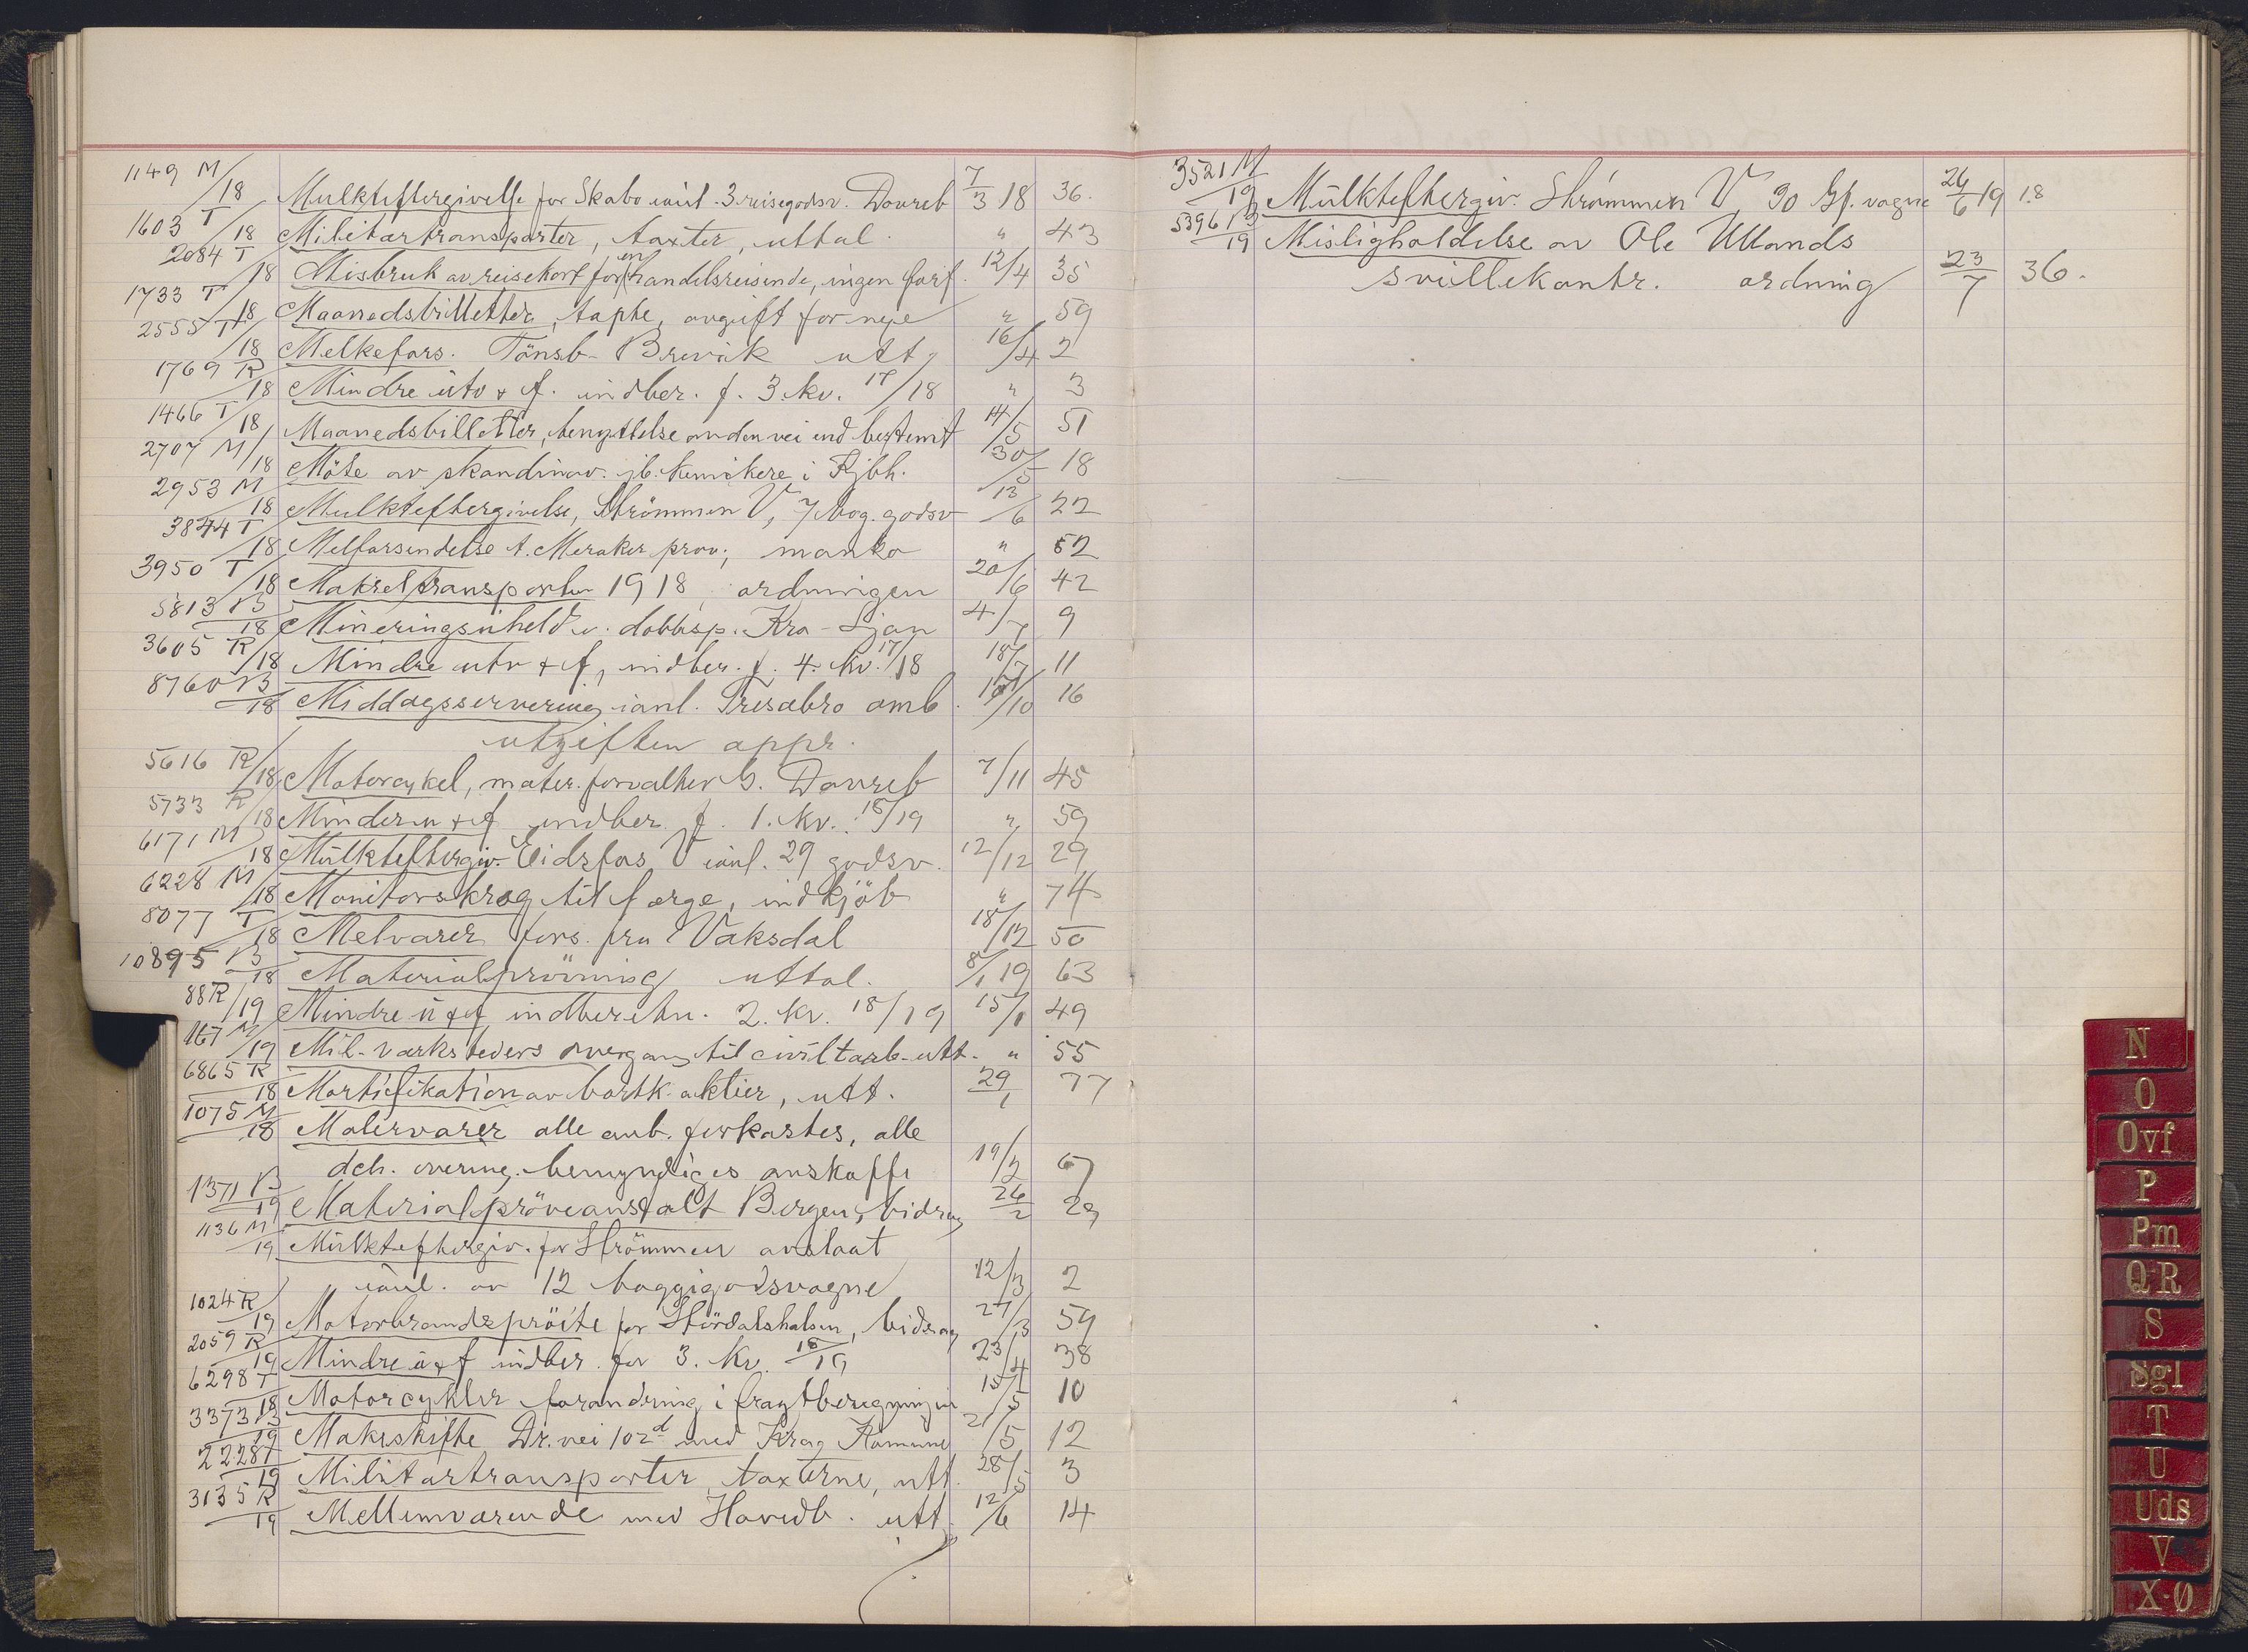 1149 M/18 Mulkteftergivelse for Skabo ianl. 3 reisegodsv. Dovreb 7/3 18 36.
1603 T/18 Militærtransporter, taxter, uttal. " 43
2084 T/18 Misbruk av reisekort for en handelsreisende, ingen forf. 12/4 35
1733 T/18 Maanedsbilletter, tapte, avgift for nye " 59
2555 T/18 Melkefors. Tönsb-Brevik utt, 16/4 2
1769 R/18 Mindre utv + f. indber. f. 3. kv. 17/18 " 3
1466 T/18 Maanedsbilletter, benyttelse anden vei end bestemt 14/5 51
2707 M/18 Möte av skandinav. jb. kemikere i Kjbh. 30/5 18
2953 M/18 Mulkteftergivelse, Strömmen V, 7 bog. godsv 13/6 22
3844 T/18 Melforsendelse t. Meraker prov., manko " 52
3950 T/18 Makreltransporten 1918, ordningen 20/6 42
5813 B/18 Mineringsuheld v. dobbsp. Kra-Ljan 4/7 9
3605 R/18 Mindre utv + f, indber. f. 4. kv. 17/18 18/7 11
8760 B/18 Middagsservering ianl. amb. /10 16
utgiften appr.
5616 R/18 Motorcykel, mater.forvalter S. Dovreb 7/11 45
5733 R/18 Mindre u + f indber f. 1. kv. 18/19 " 59
6171 M/18 Mulkteftergiv. Eidsfos V ianl. 29 godsv. 12/12 29
6228 M/18 Monitorskrog til færge, indkjöb " 74
8077 T/18 Melvarer fors. fra Vaksdal 18/12 50
10895 B/18 Materialprövning uttal. 8/1 19 63
88 R/19 Mindre u + f indberetn. 2. kv. 18/19 15/1 49
167 M/19 Mil-verksteders overgang til civilt arb-utt. " 55
6865 R/18 Mortifikation av bortk. aktier, utt. 29/1 77
1075 M/18 Malervarer alle anb. forkastes, alle
dch. overing. bemyndiges anskaffe 19/2 67
1371 B/19 Materialpröveanstalt Bergen, bidrag 26/2 29
1136 M/19 Mulkteftergiv. for Strömmen avslaat
ianl. av 12 boggigodsvogne 12/3 2
1024 R/19 Motorbrandspröite for Stördalshalsen, bidrag 27/3 59
2059 R/19 Mindre u + f indber. for 3. kv. 18/19 23/4 38
6298 T/18 Motorcykler forandring i fragtberegningen 15/5 10
3373 B/19 Makeskifte Dr.vei 102d med Krag Komune 21/5 12
2228 T/19 Militærtransporter, taxterne, utt. 28/5 3
3135 R/19 Mellemværende med Hovedb. utt. 12/6 14
3521 M/19 Mulkteftergiv. Strömmen V, 30 Gf. vogne 26/6 19 18
5396 B/19 Misligholdelse av Ole Ullands
svillekontr. ordning 23/7 36.
N
O
Ovf
P
Pm
Q-R
S
Sgl
T
U
Uds
V
X-Ø